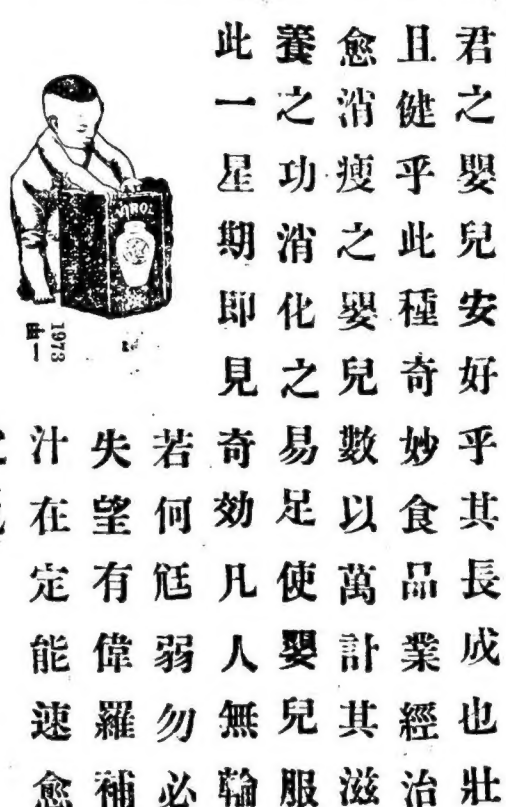 君之嬰兒安好乎其長成也壯
且健乎此種奇妙食品業經治
愈消瘦之嬰兒數以萬計其滋
養之功消化之易足使嬰兒服
此一星期即見奇効凡人無輪
若何尫弱勿必
失望有偉羅補
汁在定能速愈
VIROL
1973